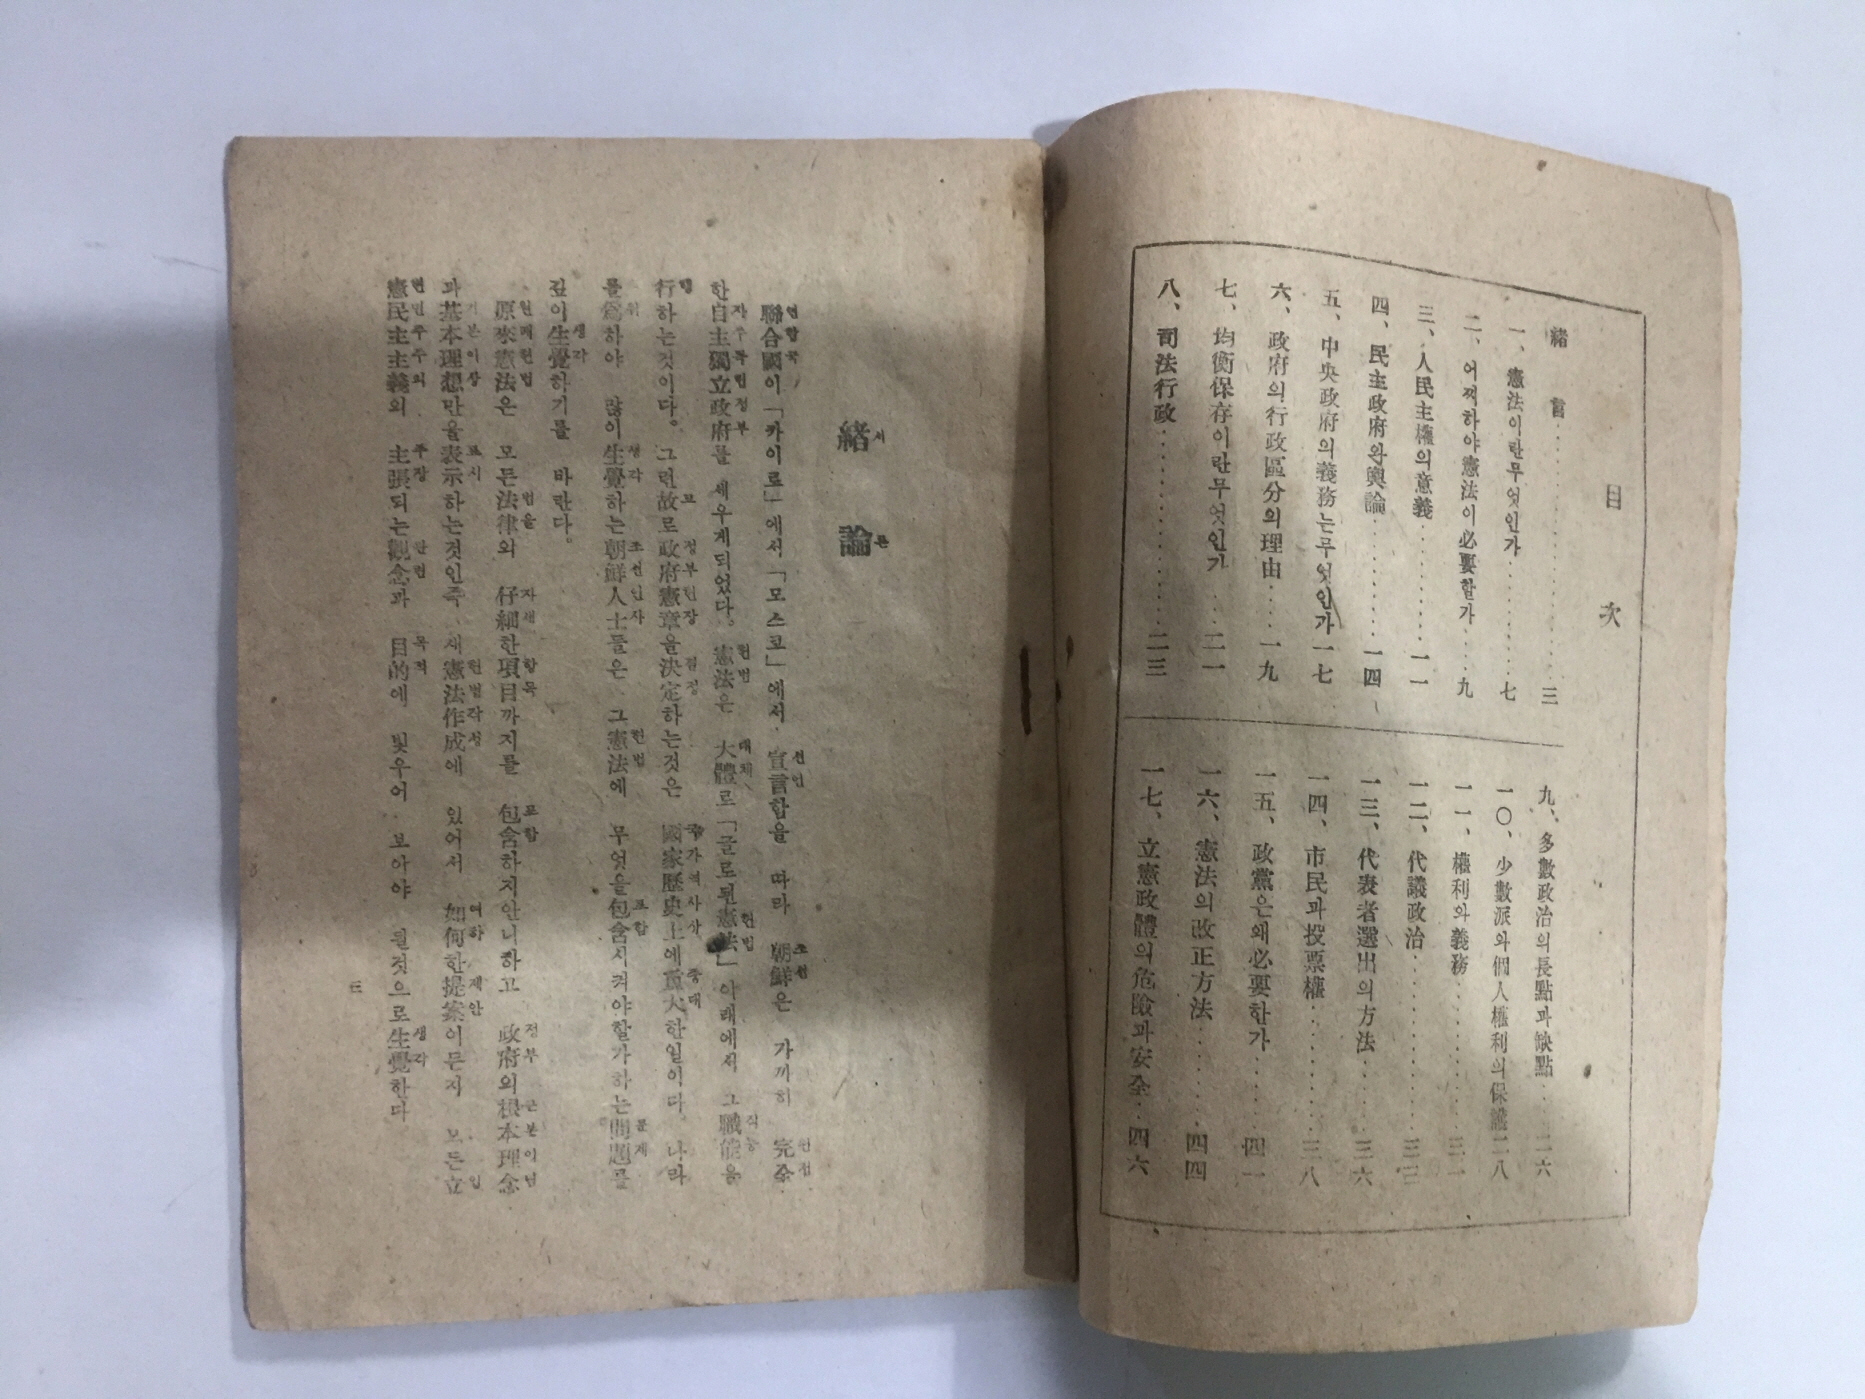 目次
緒言‥‥‥‥‥‥三
一、憲法이란무엇인가‥‥‥‥七
二、어찌하야憲法이必要할가‥‥九
三、人民主權의意義‥‥‥‥一一
四、民主政府와輿論‥‥‥‥一四
五、中央政府의義務는무엇인가一七
六、政府의行政區分의理由‥‥一九
七、均衡保存이란무엇인가‥‥二一
八、司法行政‥‥‥‥‥‥二三
九、多數政治의長點과缺點‥‥二六
一〇、少數派와個人權利의保護二八
一一、權利와義務‥‥‥‥三一
一二、代議政治‥‥‥‥‥三三
一三、代表者選出의方法‥‥三六
一四、市民과投票權‥‥‥‥三八
一五、政黨은왜必要한가‥‥四一
一六、憲法의改正方法‥‥‥四四
一七、立憲政體의危險과安全‥四六
緒論
聯合國이「카이로」에서「모스코」에서 宣言합을 따라 朝鮮은 가까히 完全
한自主獨立政府를 세우게되었다。憲法은 大體로「글로된憲法」아래에서 그職能을
行하는것이다。그런故로政府憲章을決定하는것은 國家歷史上에重大한일이다。나라
를爲하야 많이生覺하는朝鮮人士들은 그憲法에 무엇을包含시켜야할가하는問題를
깊이生覺하기를 바란다。
原來憲法은 모든法律의 仔細한項目까지를 包含하지안니하고 政府의根本理念
과基本理想만을表示하는것인즉 새憲法作成에 있어서 如何한提案이든지 모든立
憲民主主義의 主張되는觀念과 目的에 빛우어 보아야 될것으로生覺한다
三